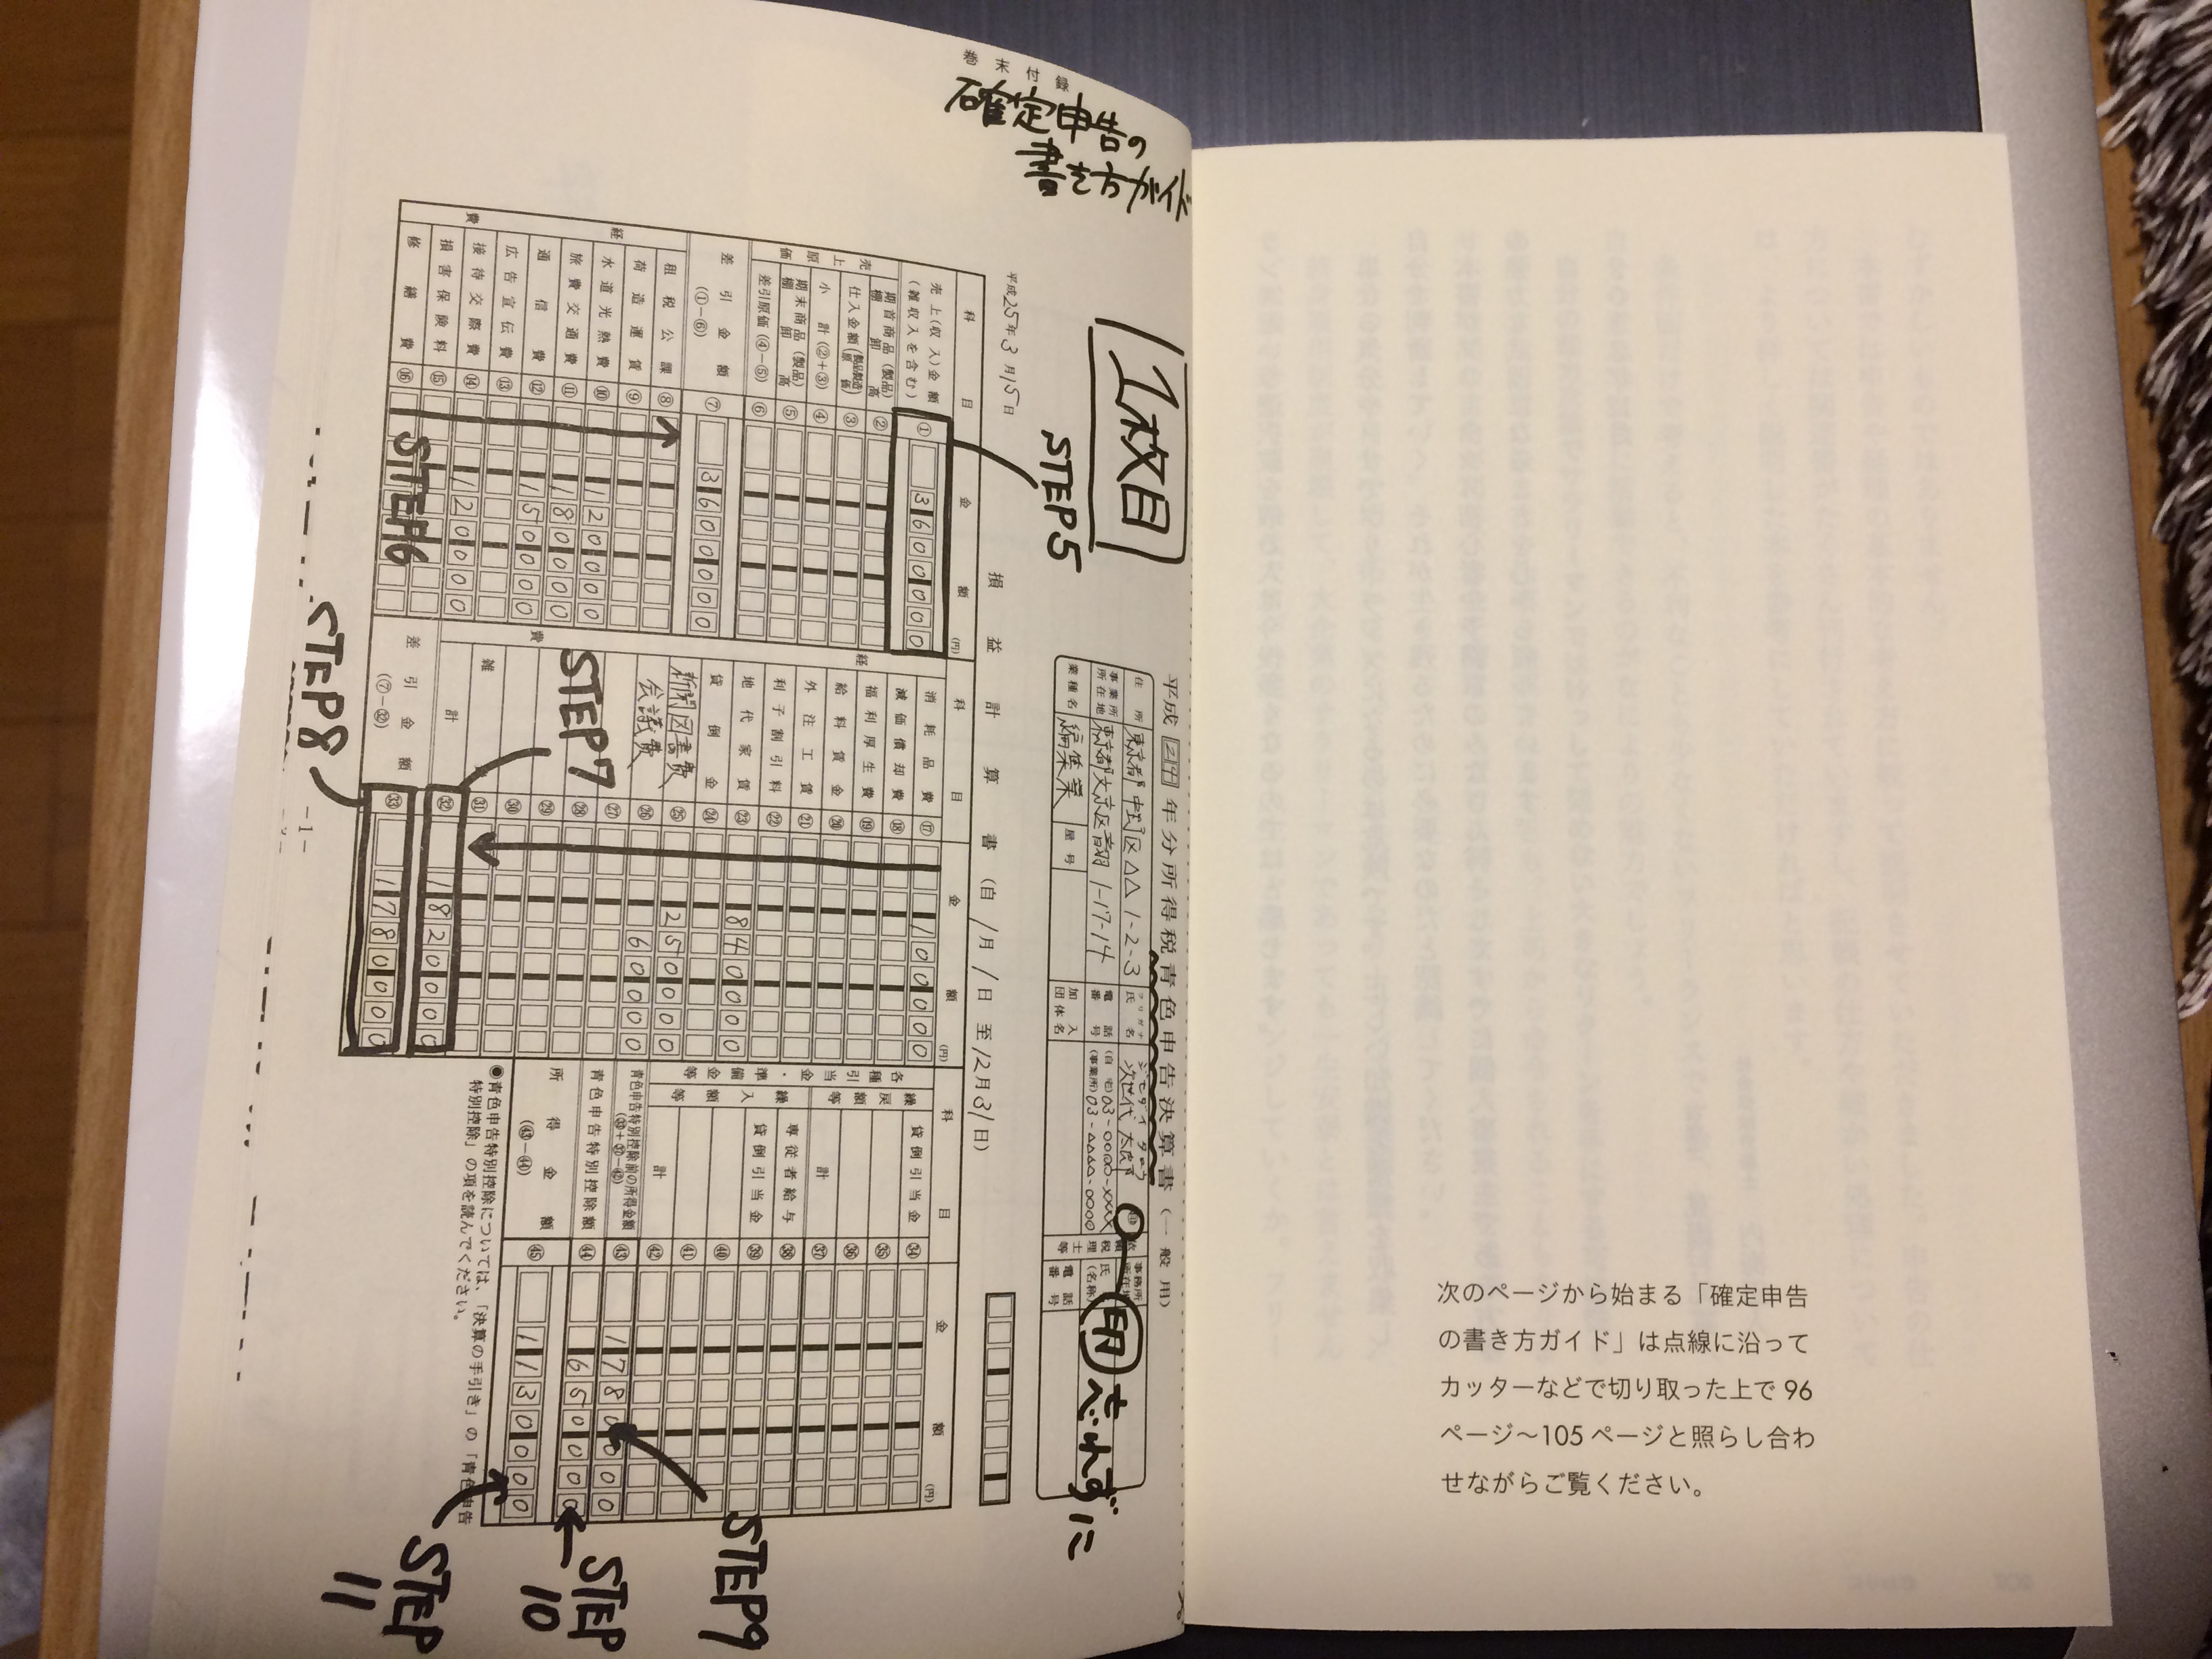 次のページから始まる「確定申告
の書き方ガイド」は点線に沿って
カッターなどで切り取った上で 96
ページ〜105 ページと照らし合わ
せながらご覧ください。
巻末付録
確定申告の
書き方ガイド
1枚目
STEP5
印 忘れずに
平成 24 年分所得税青色申告決算書(一般用)
住所 東京都中野区△△ 1-2-3
フリガナ ジセダイ タロウ
氏名 次世代 太郎
事業所所在地 東京都文京区音羽 1-17-14
電話番号 (自宅) 03-○○○○-××××
(事業所) 03-△△△△-○○○○
業種名 編集業
屋号
加入団体名
依頼税理士等
事務所所在地
氏名(名称)
電話番号
平成25年3月15日
損益計算書 (自 1月1日 至 12月31日)
科目 金額 (円)
売上(収入)金額(雑収入を含む) ① 3600000
売上原価
期首商品(製品)棚卸高 ②
仕入金額(製品製造原価) ③
小計(②+③) ④
期末商品(製品)棚卸高 ⑤
差引原価(④−⑤) ⑥
差引金額(①−⑥) ⑦ 3600000
経費
租税公課 ⑧
荷造運賃 ⑨
水道光熱費 ⑩ 120000
旅費交通費 ⑪ 180000
通信費 ⑫ 150000
広告宣伝費 ⑬
接待交際費 ⑭ 120000
損害保険料 ⑮
修繕費 ⑯
STEP6
科目 金額 (円)
経費
消耗品費 ⑰ 100000
減価償却費 ⑱
福利厚生費 ⑲
給料賃金 ⑳
外注工賃 ㉑
利子割引料 ㉒
地代家賃 ㉓ 840000
貸倒金 ㉔
新聞図書費 ㉕ 250000
会議費 ㉖ 60000
㉗
㉘
㉙
㉚
雑費 ㉛
計 ㉜ 1820000
差引金額(⑦−㉜) ㉝ 1780000
STEP7
STEP8
科目 金額 (円)
各種引当金・準備金等
繰戻額等
貸倒引当金 ㉞
㉟
㊱
計 ㊲
繰入額等
専従者給与 ㊳
貸倒引当金 ㊴
㊵
㊶
計 ㊷
青色申告特別控除前の所得金額(㉝+㊲−㊷) ㊸ 1780000
青色申告特別控除額 ㊹ 650000
所得金額(㊸−㊹) ㊺ 1130000
●青色申告特別控除については、「決算の手引き」の「青色申告
特別控除」の項を読んでください。
STEP9
STEP
10
STEP
11
-1-